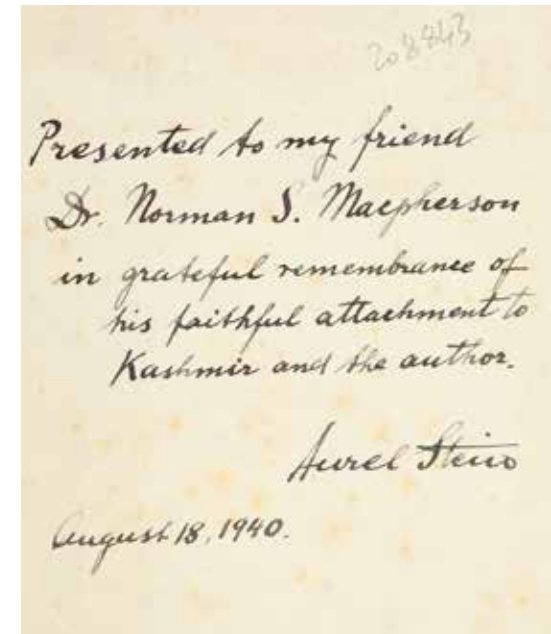 208843
Presented to my friend
Dr. Norman S. Macpherson
in grateful remembrance of
his faithful attachment to
Kashmir and the author.
Aurel Stein
August 18, 1940.